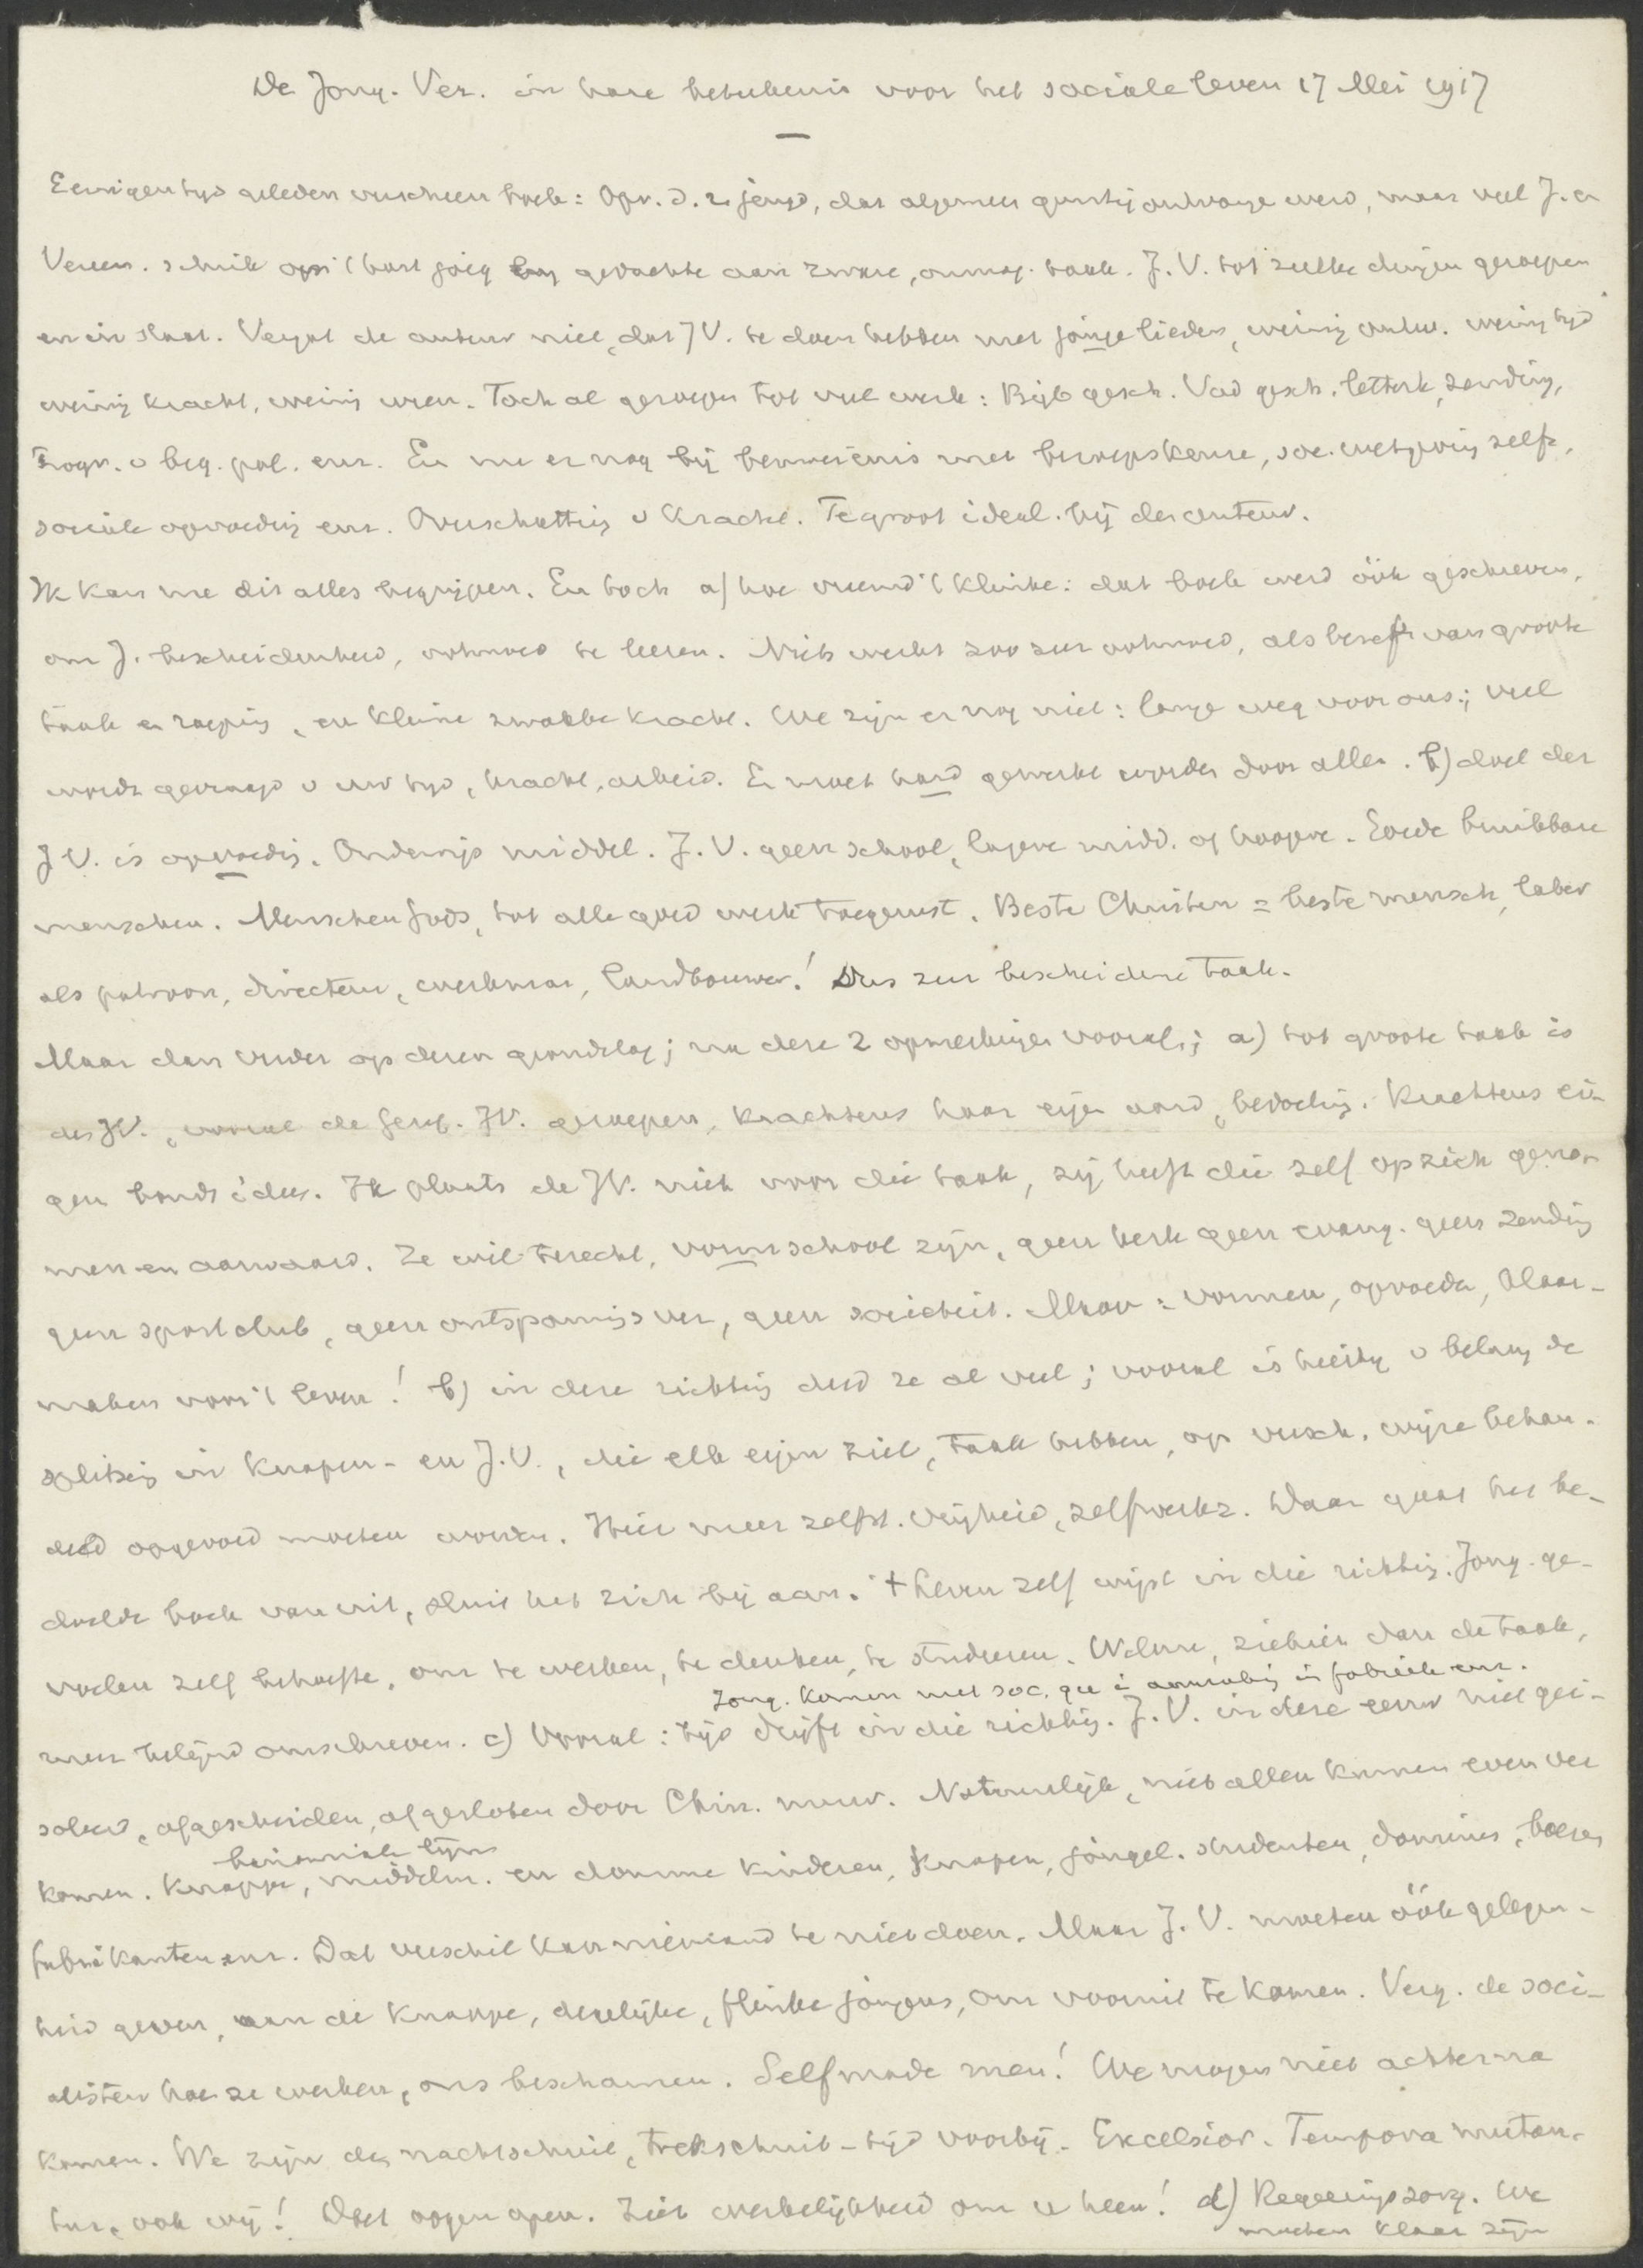 De Jong. Ver. in hare beteekenis voor het sociale leven 17 Mei 1917
Eenigen tijd geleden verscheen boek: Opv. d. r. jeugd, dat algemeen gunstig ontvangen werd, maar veel J. en
Vereen. schrik op 't hart joeg bij gedachte aan zware, onmog. taak. J. V. tot zulke dingen geroepen
en in staat. Vergat de auteur niet, dat JV. te doen hebben met jongelieden, weinig ontw. weinig tijd
weinig kracht, weinig uren. Toch al geroepen tot veel werk: Bijb gesch. Vad gesch. letterk, zending,
Progr. v beg. pol. enz. En nu er nog bij bemoeienis met beroepskeuze, soc. wetgeving zelfs,
sociale opvoeding enz. Overschatting v kracht. Te groot ideal. bij den auteur.
Ik kan me dit alles begrijpen. En toch a) hoe vreemd 't klinke: dat boek werd óók geschreven,
om J. bescheidenheid, ootmoed te leeren. Niets werkt zoo zeer ootmoed, als besef van groote
taak en roeping, en kleine zwakke kracht. We zijn er nog niet: lange weg voor ons; veel
wordt gevraagd v uw tijd, kracht, arbeid. Er moet hard gewerkt worden door allen. b) doel der
J V. is opvoeding. Onderwijs middel. J. V. geen school, lagere midd. of hoogere. Goede bruikbare
menschen. Menschen Gods, tot alle goed werk toegerust. Beste Christen = beste mensch, later
als patroon, directeur, werkman, landbouwer! Dus zeer bescheidene taak.
Maar dan verder op dezen grondslag; nu deze 2 opmerkingen vooraf; a) tot groote taak is
de JV., vooral de Geref. JV. geroepen, krachtens haar eigen aard, bedoeling. Krachtens ei-
gen bondsidee. Ik plaats de JV. niet voor die taak, zij heeft die zelf op zich geno-
men en aanvaard. Ze wil terecht, vormschool zijn, geen kerk geen evang. geen zending
geen sportclub, geen ontspannings ver, geen societeit. Maar: vormen, opvoeden, klaar-
maken voor 't leven! b) in deze richting deed ze al veel; vooral is hierbij v belang de
splitsing in Knapen- en J.V., die elk eigen ziel, taak hebben, op versch. wijze behan-
deld opgevoed moeten worden. Hier meer zelfst. vrijheid, zelfwerkz. Daar gaat het be-
doelde boek van uit, sluit het zich bij aan. 't leven zelf wijst in die richting. Jong. ge-
voelen zelf behoefte, om te werken, te denken, te studeeren. Welnu, ziehier dan de taak,
Jong. komen met soc. qu. in aanraking in fabriek enz.
meer belijnd omschreven. c) Vooral: tijd drijft in die richting. J. V. in deze eeuw niet geï-
soleerd, afgescheiden, afgesloten door Chin. muur. Natuurlijk, niet allen kunnen even ver
komen. Knappe, middelm. en domme kinderen, knapen, jongel. studenten, dominees, boeren,
fabrikanten enz. Dat verschil kan niemand te niet doen. Maar J. V. moeten óók gelegen-
heid geven, aan de knappe, degelijke, flinke jongens, om vooruit te komen. Verg. de soci-
alisten hoe ze werken, ons beschamen. Selfmade men! We mogen niet achterna
komen. We zijn de nachtschuit, trekschuit-tijd voorbij. Excelsior. Tempora mutan-
tur, ook wij! Doet oogen open. Ziet werkelijkheid om u heen! d) Regeeringszorg. We
moeten klaar zijn